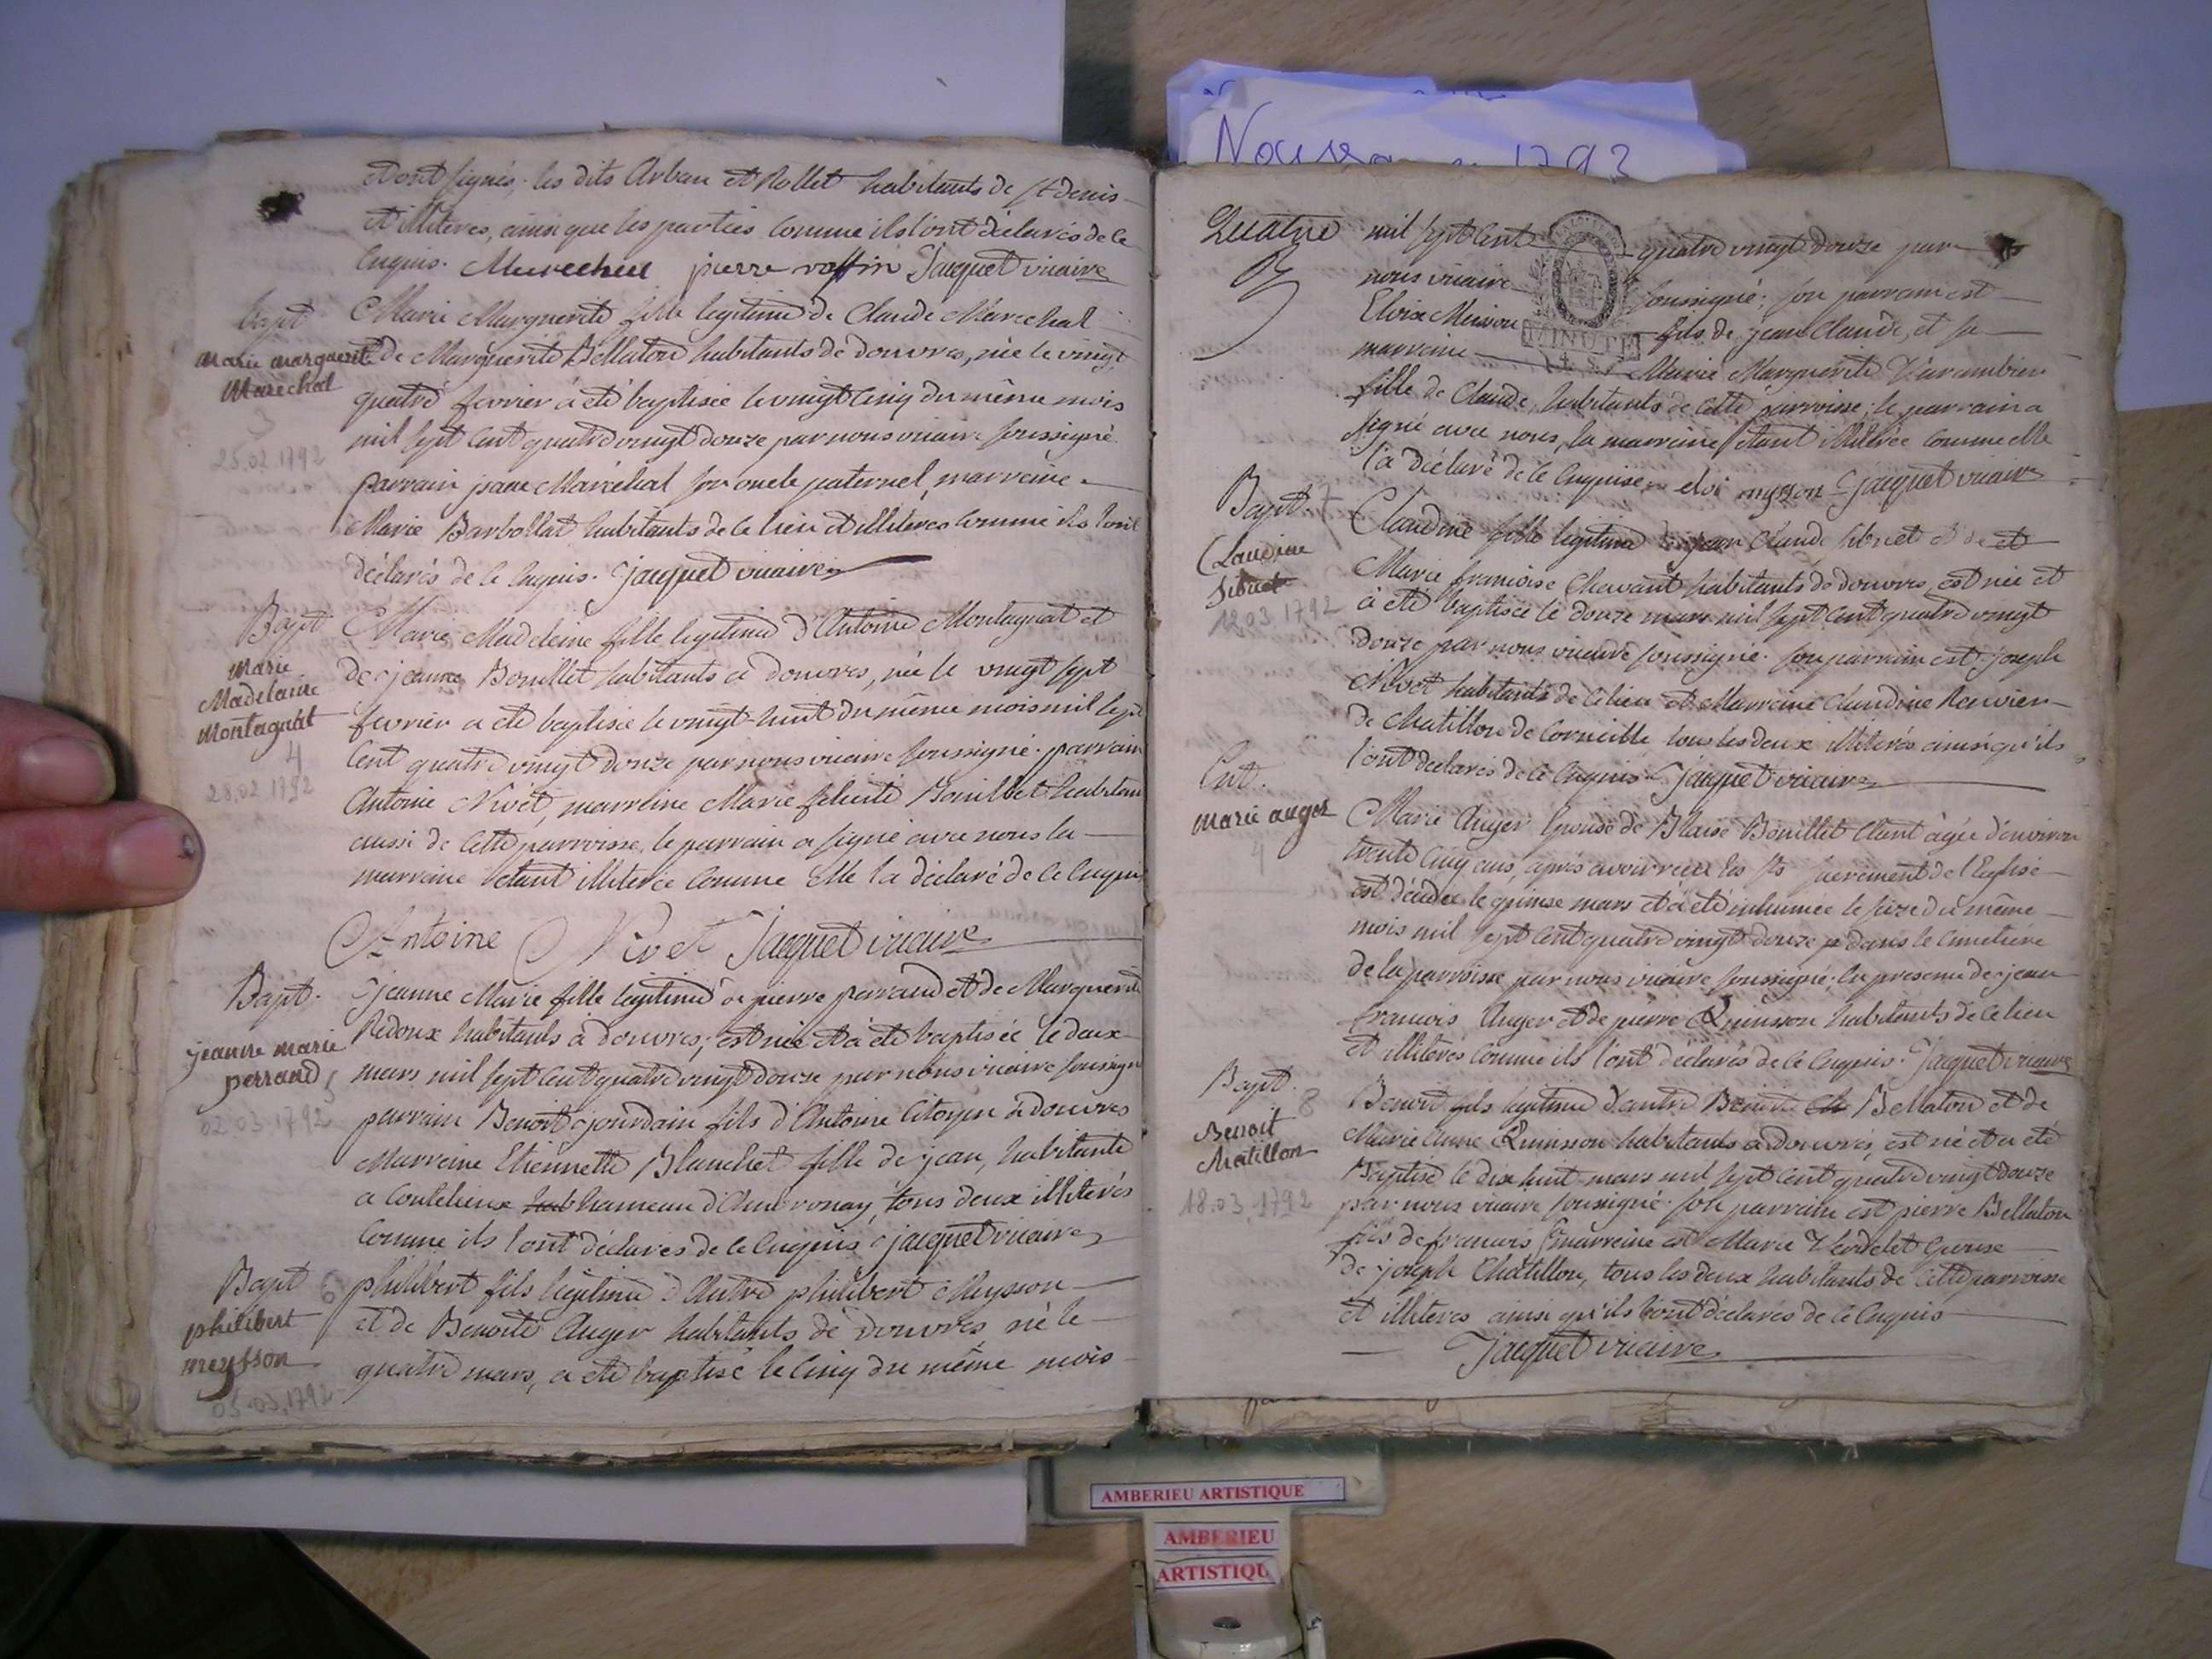 Nouv 1793
et ont signés; les dits Arban et Rollet habitants de st denis
et illiterés, ainsi que les parties comme ils l'ont déclarés de ce
enquis. Marechal pierre roffin Jacquet vicaire
Bapt
marie marguerite
Maréchal
3
25.02.1792
Marie Marguerite fille legitime de Claude Marechal
et de Marguerite Bellaton habitants de douvres, née le vingt
quatre fevrier à eté baptisée le vingt cinq du même mois
mil sept cent quatre vingt douze par nous vicaire soussigné
parrain Maréchal son oncle paternel, marreine
Marie Barbollat habitants de ce lieu et illiteres comme ils l'ont
déclarés de ce enquis. Jacquet vicaire
Bapt
Marie
Madelaine
Montagnat
4
28.02.1792
Marie Madeleine fille legitime d'Antoine Montagnat et
de jeanne Bouillet habitants a douvres, née le vingt sept
fevrier a eté baptisée le vingt-huit du même mois mil sept
cent quatre vingt douze par nous vicaire soussigné. parrain
Antoine Nivet, marreine Marie felicité Bouillet habitan
aussi de cette parroisse, le parrain a signé avec nous la
marreine etant illiterée comme elle l'a déclaré de ce enquis
Antoine Nivet Jacquet vicaire
Bapt.
jeanne marie
perraud
5
02.03.1792
jeanne Marie fille legitime de pierre perraud et de Marguerite
Redoux habitants a douvres; est née et à eté baptisée le deux
mars mil sept cent quatre vingt douze par nous vicaire soussigné
parrain Benoit jourdain fils d'Antoine citoyen a douvres
Marreine Etiennette Blanchet fille de jean, habitante
a Coutelieux hab hameau d'Ambronay, tous deux illiterés
comme ils l'ont déclarés de ce enquis Jacquet vicaire
Bapt 6
philibert
meysson
05.03.1792
philibert fils legitime d'autre philibert Meysson
et de Benoite Auger habitants de douvres né le
quatre mars, a eté baptisé le cinq du même mois
Quatre
mil sept cent quatre vingt douze par
nous vicaire soussigné; son parrain est
Eloise Meisson fils de jean Claude, et sa
MINUTE
marreine Marie Marguerite Varambier
fille de Claude, habitants de cette parroisse; le parrain a
signé avec nous, la marreine etant illiterée comme elle
l'a déclaré de ce enquise eloi mysson Jacquet vicaire
Bapt. 7
Claudine
Sibuet
12.03.1792
Claudine fille legitime de jean Claude Sibuet et de et
Marie francoise Chavant habitants de douvres, est née et
à eté baptisée le douze mars mil sept cent quatre vingt
douze par nous vicaire soussigné. son parrain est joseph
Nivet habitants de ce lieu et Marreine Claudine
de chatillon de Corneille tous les deux illiterés ainsi qu'ils
l'ont declarés de ce enquis Jacquet vicaire
Ent.
marie auger
4
Marie Auger epouse de Blaise Bouillet etant agée d'environ
trente cinq ans, après avoir reçu les sts sacrement de l'Eglise
est décédée le quinse mars et à eté inhumée le seize du même
mois mil sept cent quatre vingt douze dans le cimetière
de la parroisse par nous vicaire soussigné; en presence de jean
francois Auger et de pierre Quinsson habitants de ce lieu
et illiterés comme ils l'ont déclarés de ce enquis. Jacquet vicaire
Bapt. 8
Benoit
chatillon
18.03.1792
Benoit fils legitime d'autre Benoit Ch Bellaton et de
Marie Anne Quinsson habitants a douvres, est né et a eté
Baptisé le dix huit mars mil sept cent quatre vingt douze
par nous vicaire soussigné. son parrain est pierre Bellaton
fils de francois sa marreine est Marie Verdelet epouse
de joseph Chatillon, tous les deux habitants de cette parroisse
et illiterés ainsi qu'ils l'ont déclarés de ce enquis
Jacquet vicaire
AMBERIEU ARTISTIQUE
AMBERIEU
ARTISTIQU